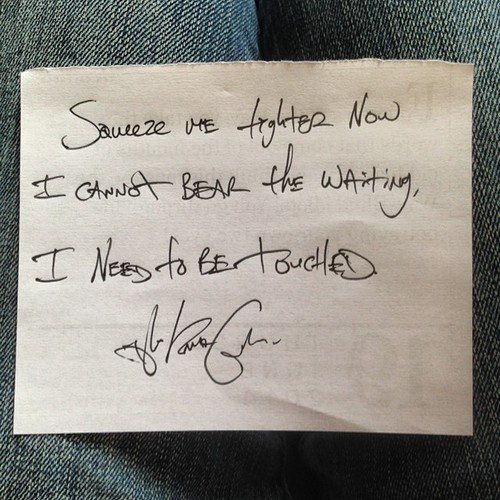 Squeeze me tighter now
I cannot bear the waiting,
I need to be touched